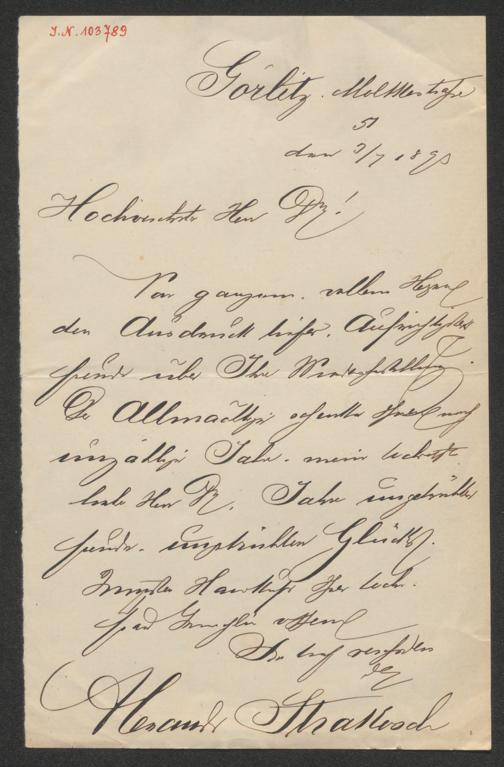 I.N. 103789
Görlitz. Moltkestraße
51
den 3/7 189
Hochverehrter Herr Dr!
Von ganzem, vollem Herzen
den Ausdruck tiefer, Aufrichtigster
Freude über Ihre Wiederherstellung.
Der Allmächtige schenke Ihnen noch
unzählige Jahre, mein
Herr Dr, Jahre ungetrübter
Freude, ungetrübten Glückes.
Ihrer
Frau Gemahlin
Ihr
Alexander Strakosch